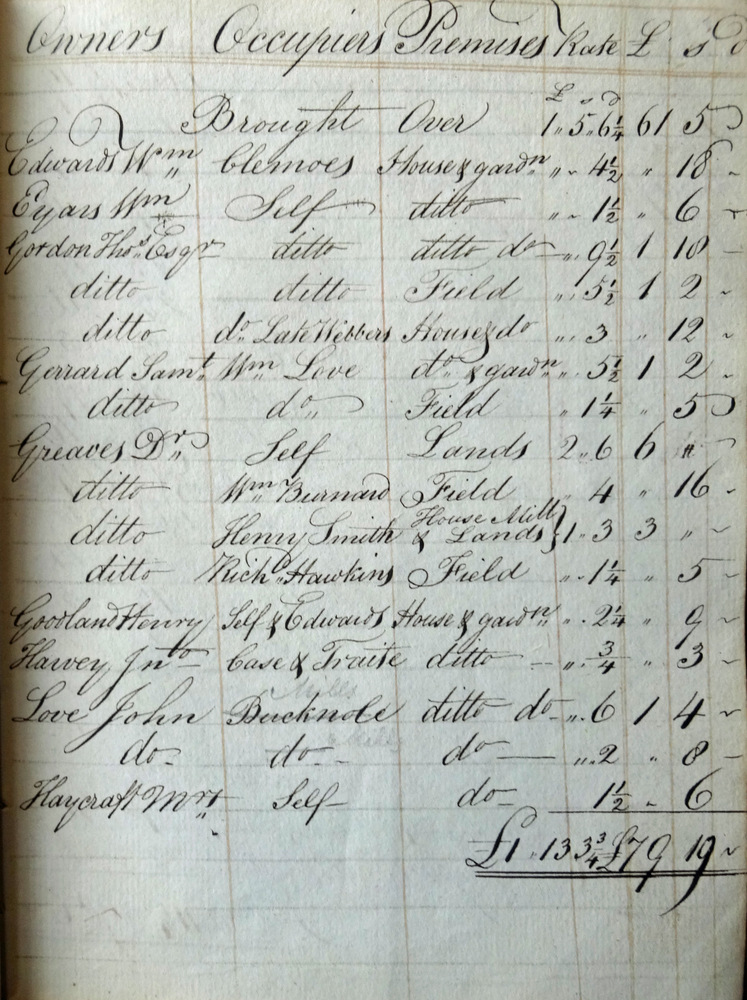 Owners Occupiers Premises Rate £ s d
£ s d
Brought Over 1 " 5 " 6¼ 61 5
Edwards Wm Clemoes House & gardn " ~ 4½ " 18 ~
Eyars Wm Self ditto " ~ 1½ " 6 ~
Gordon Thos Esqr ditto ditto do — " 9½ 1 18 —
ditto ditto Field " 5½ 1 2 ~
ditto do Late Webbers House & do " 3 " 12 ~
Gerrard Saml Wm Love do & gardn " 5½ 1 2 ~
ditto do " Field " 1¼ " 5
Greaves Dr Self Lands 2 " 6 6 "
ditto Wm Burnard Field " 4 " 16 ~
ditto Henry Smith House Mill & Lands } 1 " 3 3 " ~
ditto Richd Hawkins Field " 1¼ " 5 ~
Goodland Henry Self & Edwards House & gardn " 2¼ " 9 ~
Hawey Jno — Case & Traise ditto — " ¾ " 3 ~
Mills
Love John Bucknole ditto do — " 6 1 4 ~
do — do — do — " 2 " 8 —
Haycraft Mrs Self — do — 1½ " 6
£1 " 13 3¾ £79 19 ~